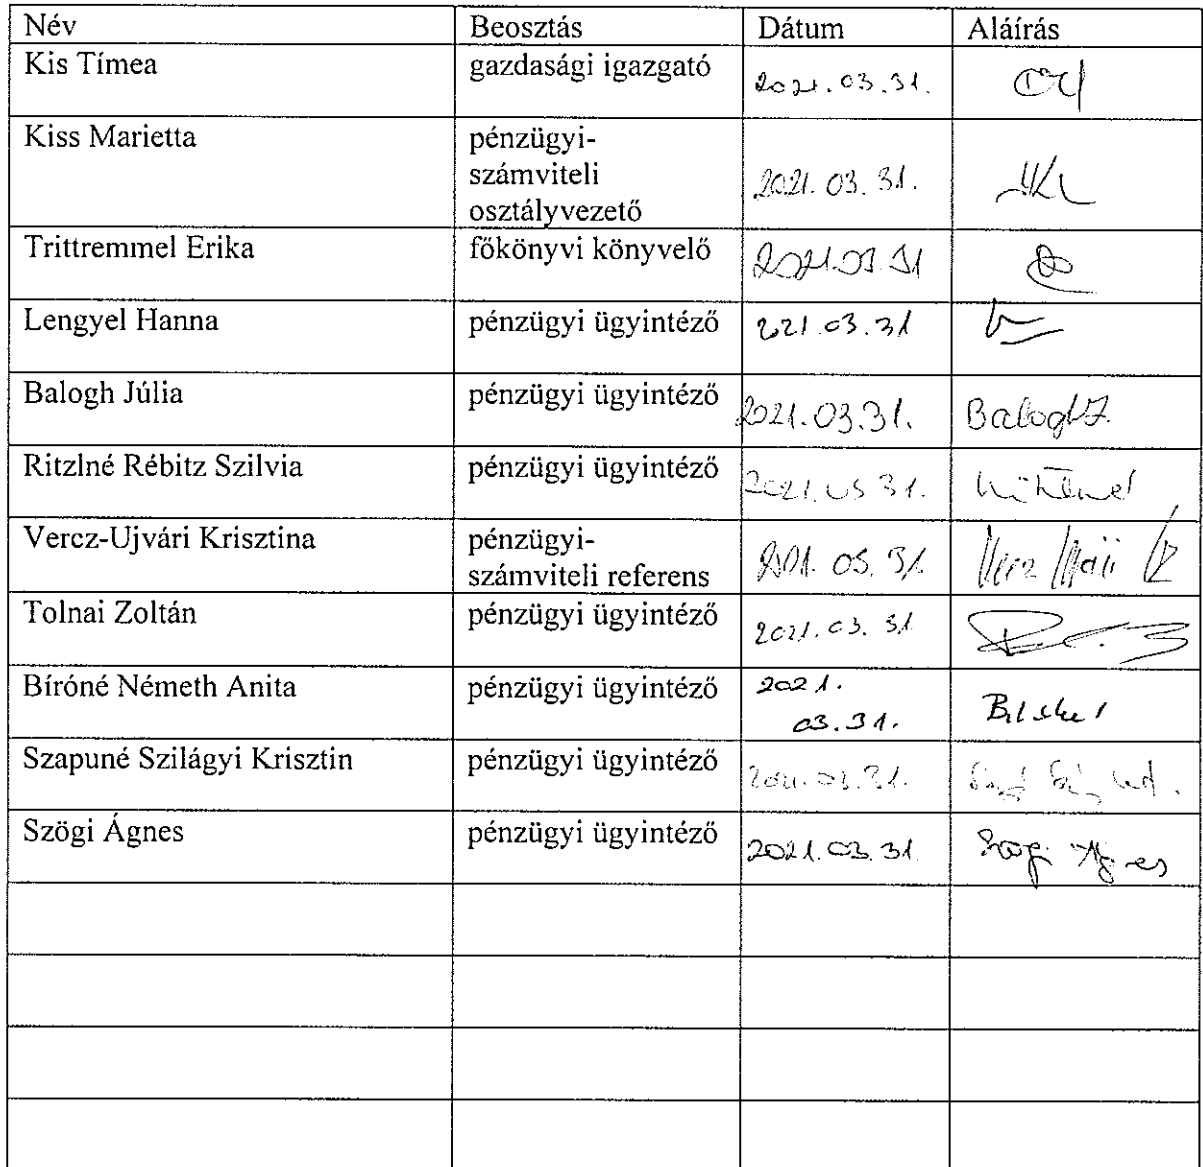 Név Beosztás Dátum Aláírás
Kis Tímea gazdasági igazgató 2021.03.31.
Kiss Marietta pénzügyi-
számviteli
osztályvezető 2021.03.31.
Trittremmel Erika főkönyvi könyvelő 2021.03.31
Lengyel Hanna pénzügyi ügyintéző 2021.03.31
Balogh Júlia pénzügyi ügyintéző 2021.03.31. Balogh J.
Ritzlné Rébitz Szilvia pénzügyi ügyintéző 2021.03.31.
Vercz-Ujvári Krisztina pénzügyi-
számviteli referens 2021.03.31.
Tolnai Zoltán pénzügyi ügyintéző 2021.03.31
Bíróné Németh Anita pénzügyi ügyintéző 2021.
03.31.
Szapuné Szilágyi Krisztin pénzügyi ügyintéző 2021.03.31.
Szögi Ágnes pénzügyi ügyintéző 2021.03.31. Szögi Ágnes